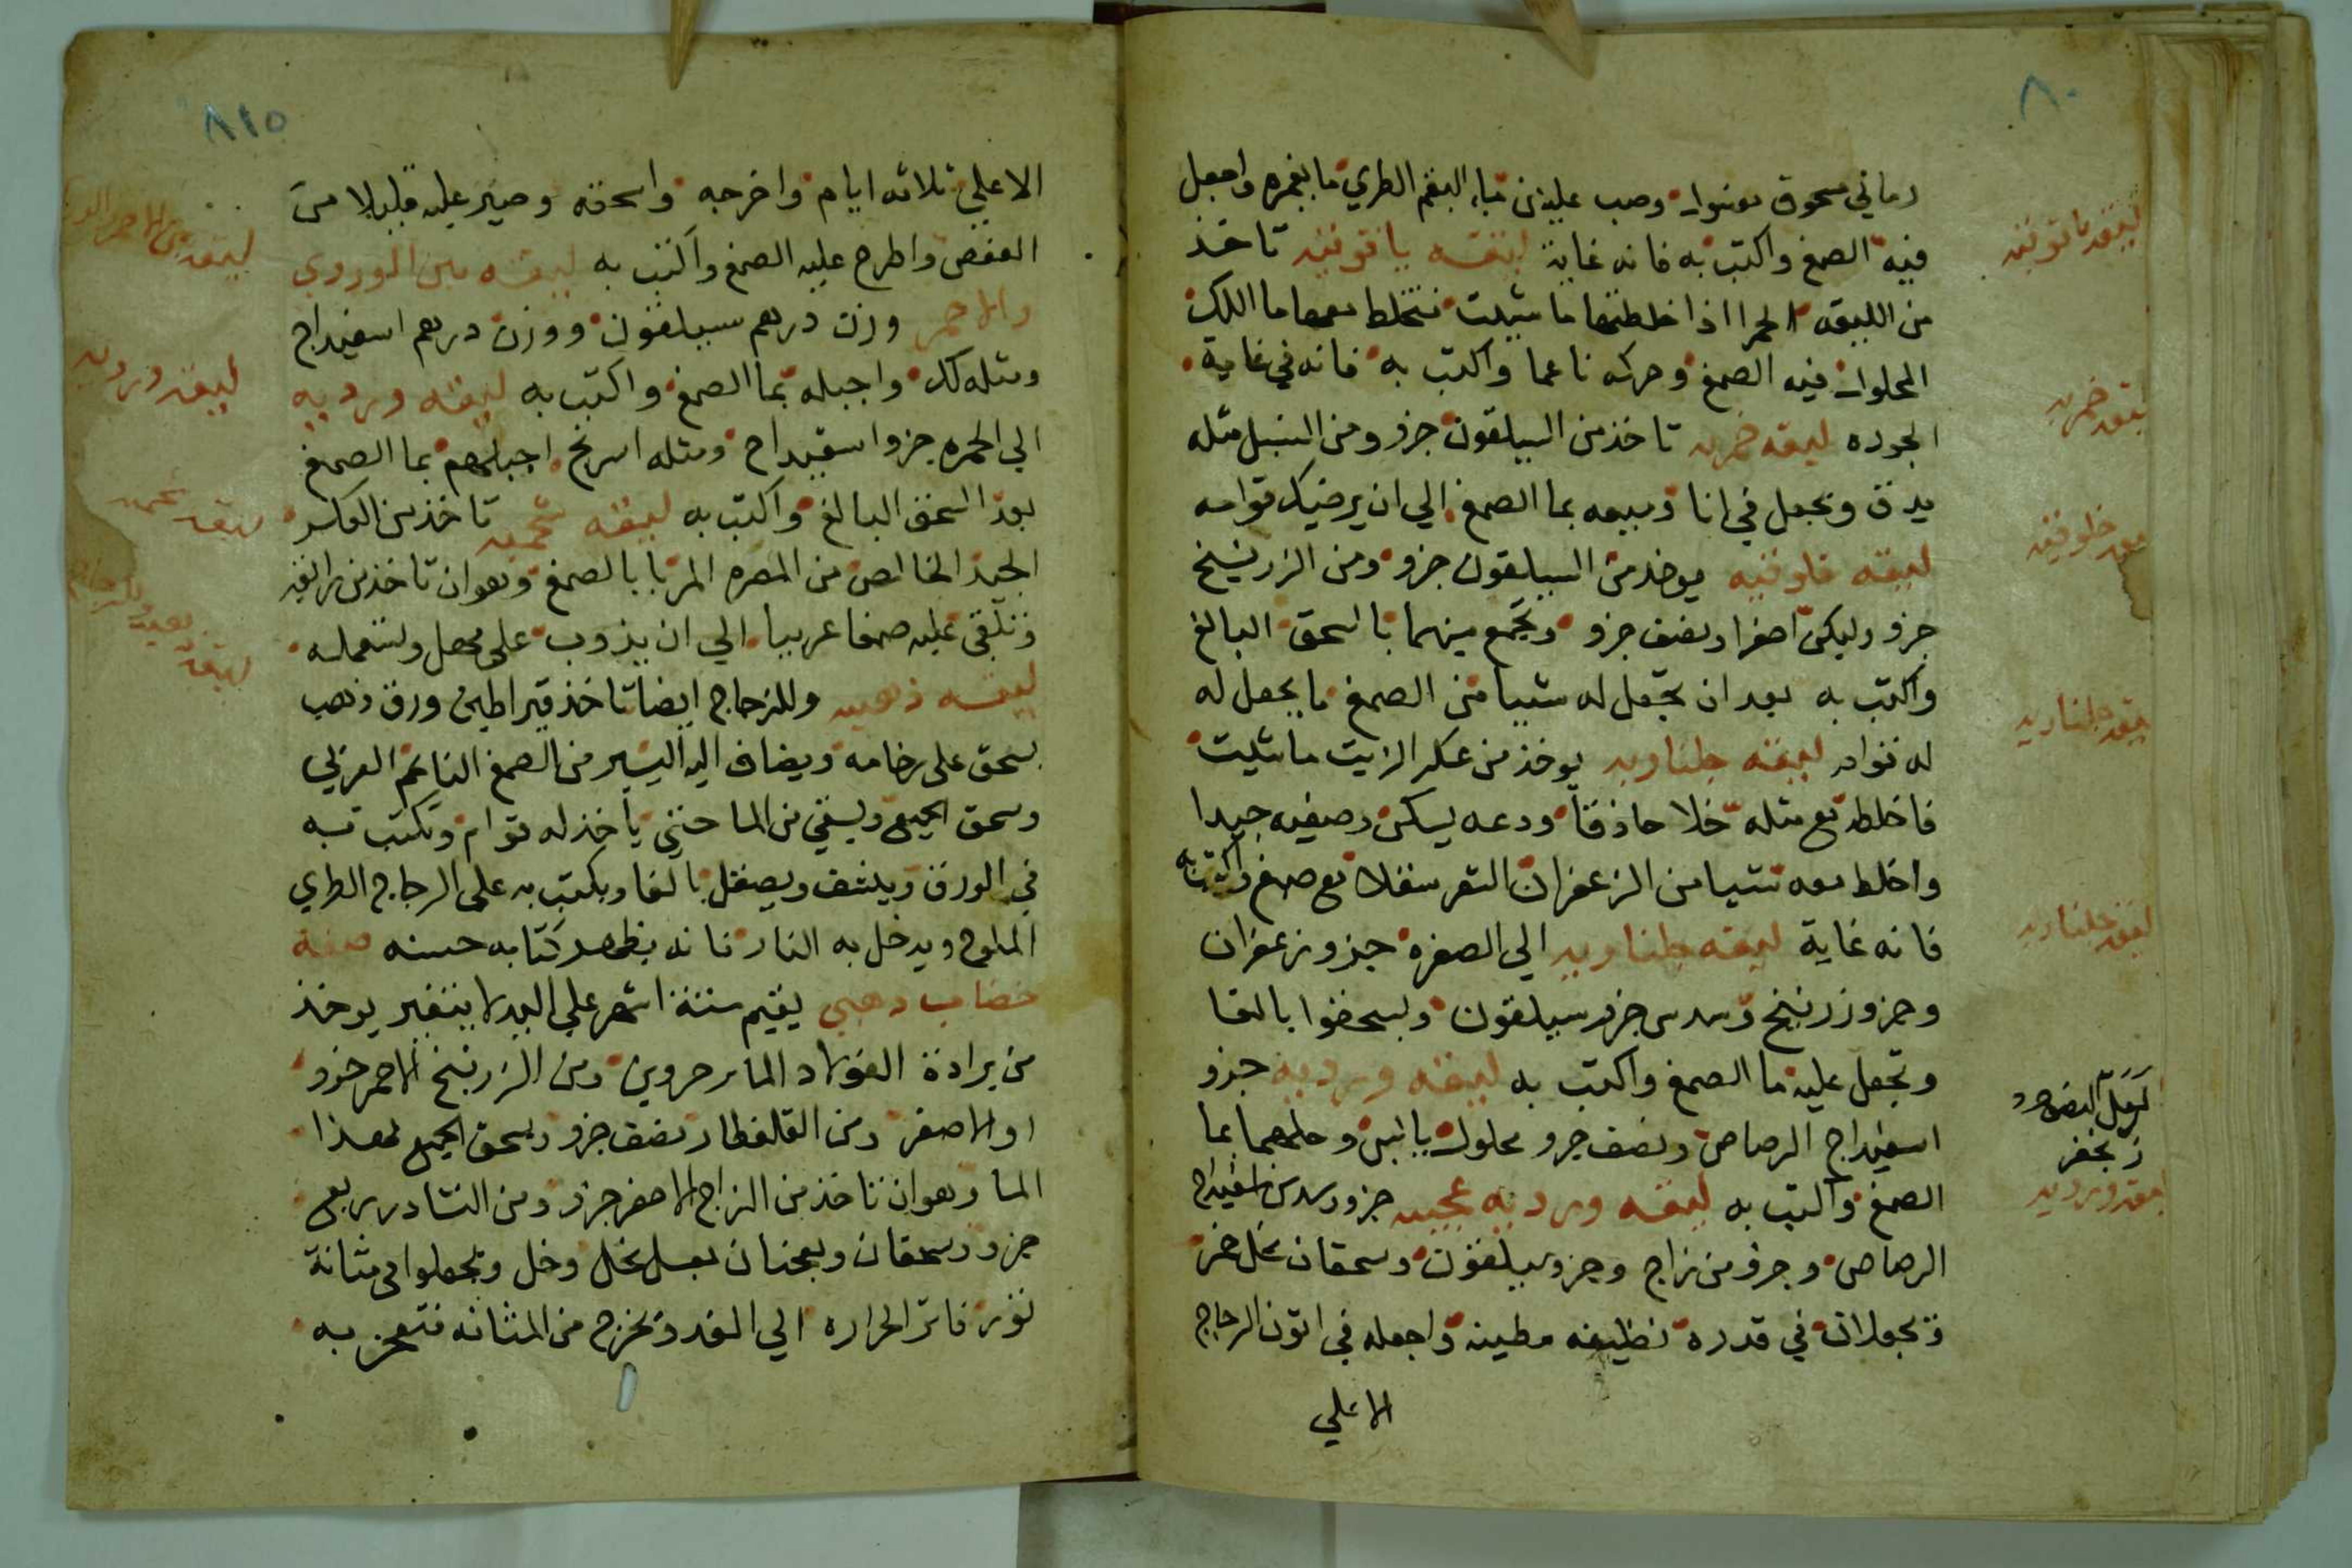 ٨٠
رماني مسحوق وصب عليه من ماء البقم الطري ما يغمره واجعل
فيه الصمغ واكتب به فانه غاية ليقه ياقوتيه تاخذ
من الليقه الحمرا اذا خلطتها ما شيت فتخلط معها ما اللك
المحلول فيه الصمغ وحركه ناعما واكتب به فانه في غاية
الجوده ليقه خمريه تاخذ من السيلقون جزو ومن النيل مثله
يدق ويجعل في انا وبيعه بما الصمغ الي ان يرضيك قوامه
ليقه خلوقيه يوخذ من السيلقون جزو ومن الزرنيخ
جزو وليكن اصفرا ونصف جزو ويجمع بينهما بالسحق البالغ
واكتب به بعد ان تجعل له شيا من الصمغ ما يجعل له
له قوام ليقه جلناريه يوخذ من عكر الزيت ما شيت
فاخلط مع مثله خلا حاذقا ودعه يسكن وصفيه جيدا
واخلط معه شيا من الزعفران الشعر مع صمغ واكتب به
فانه غاية ليقه جلناريه الي الصفره جزو زعفران
وجزو زرنيخ وسدس جزو سيلقون وليسحقوا بالقا
وتجعل عليه ما الصمغ واكتب به ليقه ورديه جزو
اسفيداج الرصاص ونصف جزو محلول باللبن وحلهما بما
الصمغ واكتب به ليقه ورديه عجيبه جزو وسدس اسفيداج
الرصاص وجزو من زاج وجزو سيلقون وسحقان بخل خمر
وتجعلان في قدره نظيفه مطينه واجعله في اتون الزجاج
الاعلي
ليقه ياقوتيه
ليقه خمريه
ليقه خلوقيه
ليقه جلناريه
ليقه جلناريه
زنجفر
ليقه ورديه
٨١٥
الاعلي ثلاثه ايام واخرجه واسحقه وصير عليه قليلا من
العفص واطرح عليه الصمغ واكتب به ليقه بين الوردي
والاحمر وزن درهم سيلقون ووزن درهم اسفيداج
ومثله لك واجبله بما الصمغ واكتب به ليقه ورديه
الي الحمره جزو اسفيداج ومثله اسرنج اجبلهم بما الصمغ
بعد السحق البالغ واكتب به ليقه شحميه تاخذ من العكر
الجيد الخالص من المغره المربا بالصمغ وهو ان تاخذ من رايقه
وتلقي عليه صمغا عربيا الي ان يذوب على مهل وتستعمله
ليقه ذهبيه وللزجاج ايضا تاخذ قيراطين ورق ذهب
يسحق على رخامه ويضاف اليه اليسير من الصمغ الناعم العربي
وسحق الجميع ويسقي من الما حتي ياخذ له قوام وتكتب به
في الورق وينشف ويصقل بالقا ويكتب به على الزجاج الطري
الملوح ويدخل به النار فانه يظهر كتابه حسنه صفة
خضاب دهبي يقيم ستة اشهر علي اليد لا يتغير يوخذ
من برادة الفولاد الما جزوين ومن الزرنيخ الاحمر جزو
او الاصفر ومن القلقطار نصف جزو ويسحق الجميع بهذا
الما وهو ان تاخذ من الزاج الاصفر جزو ومن النشادر ربع
جزو وسحقان ويعجنان بعسل نحل وخل وتجعلوا في مثانة
ثور فاتر الحراره الي الغد وتخرج من المثانه فتعجن به
ليقه بين الاحمر
ليقه ورديه
ليقه شحميه
ليقه ذهبيه وللزجاج